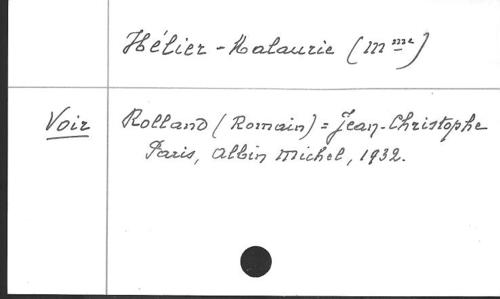 Hélier-Malaurie (Mme)
Voir Rolland (Romain) = Jean-Christophe
Paris, Albin Michel, 1932.